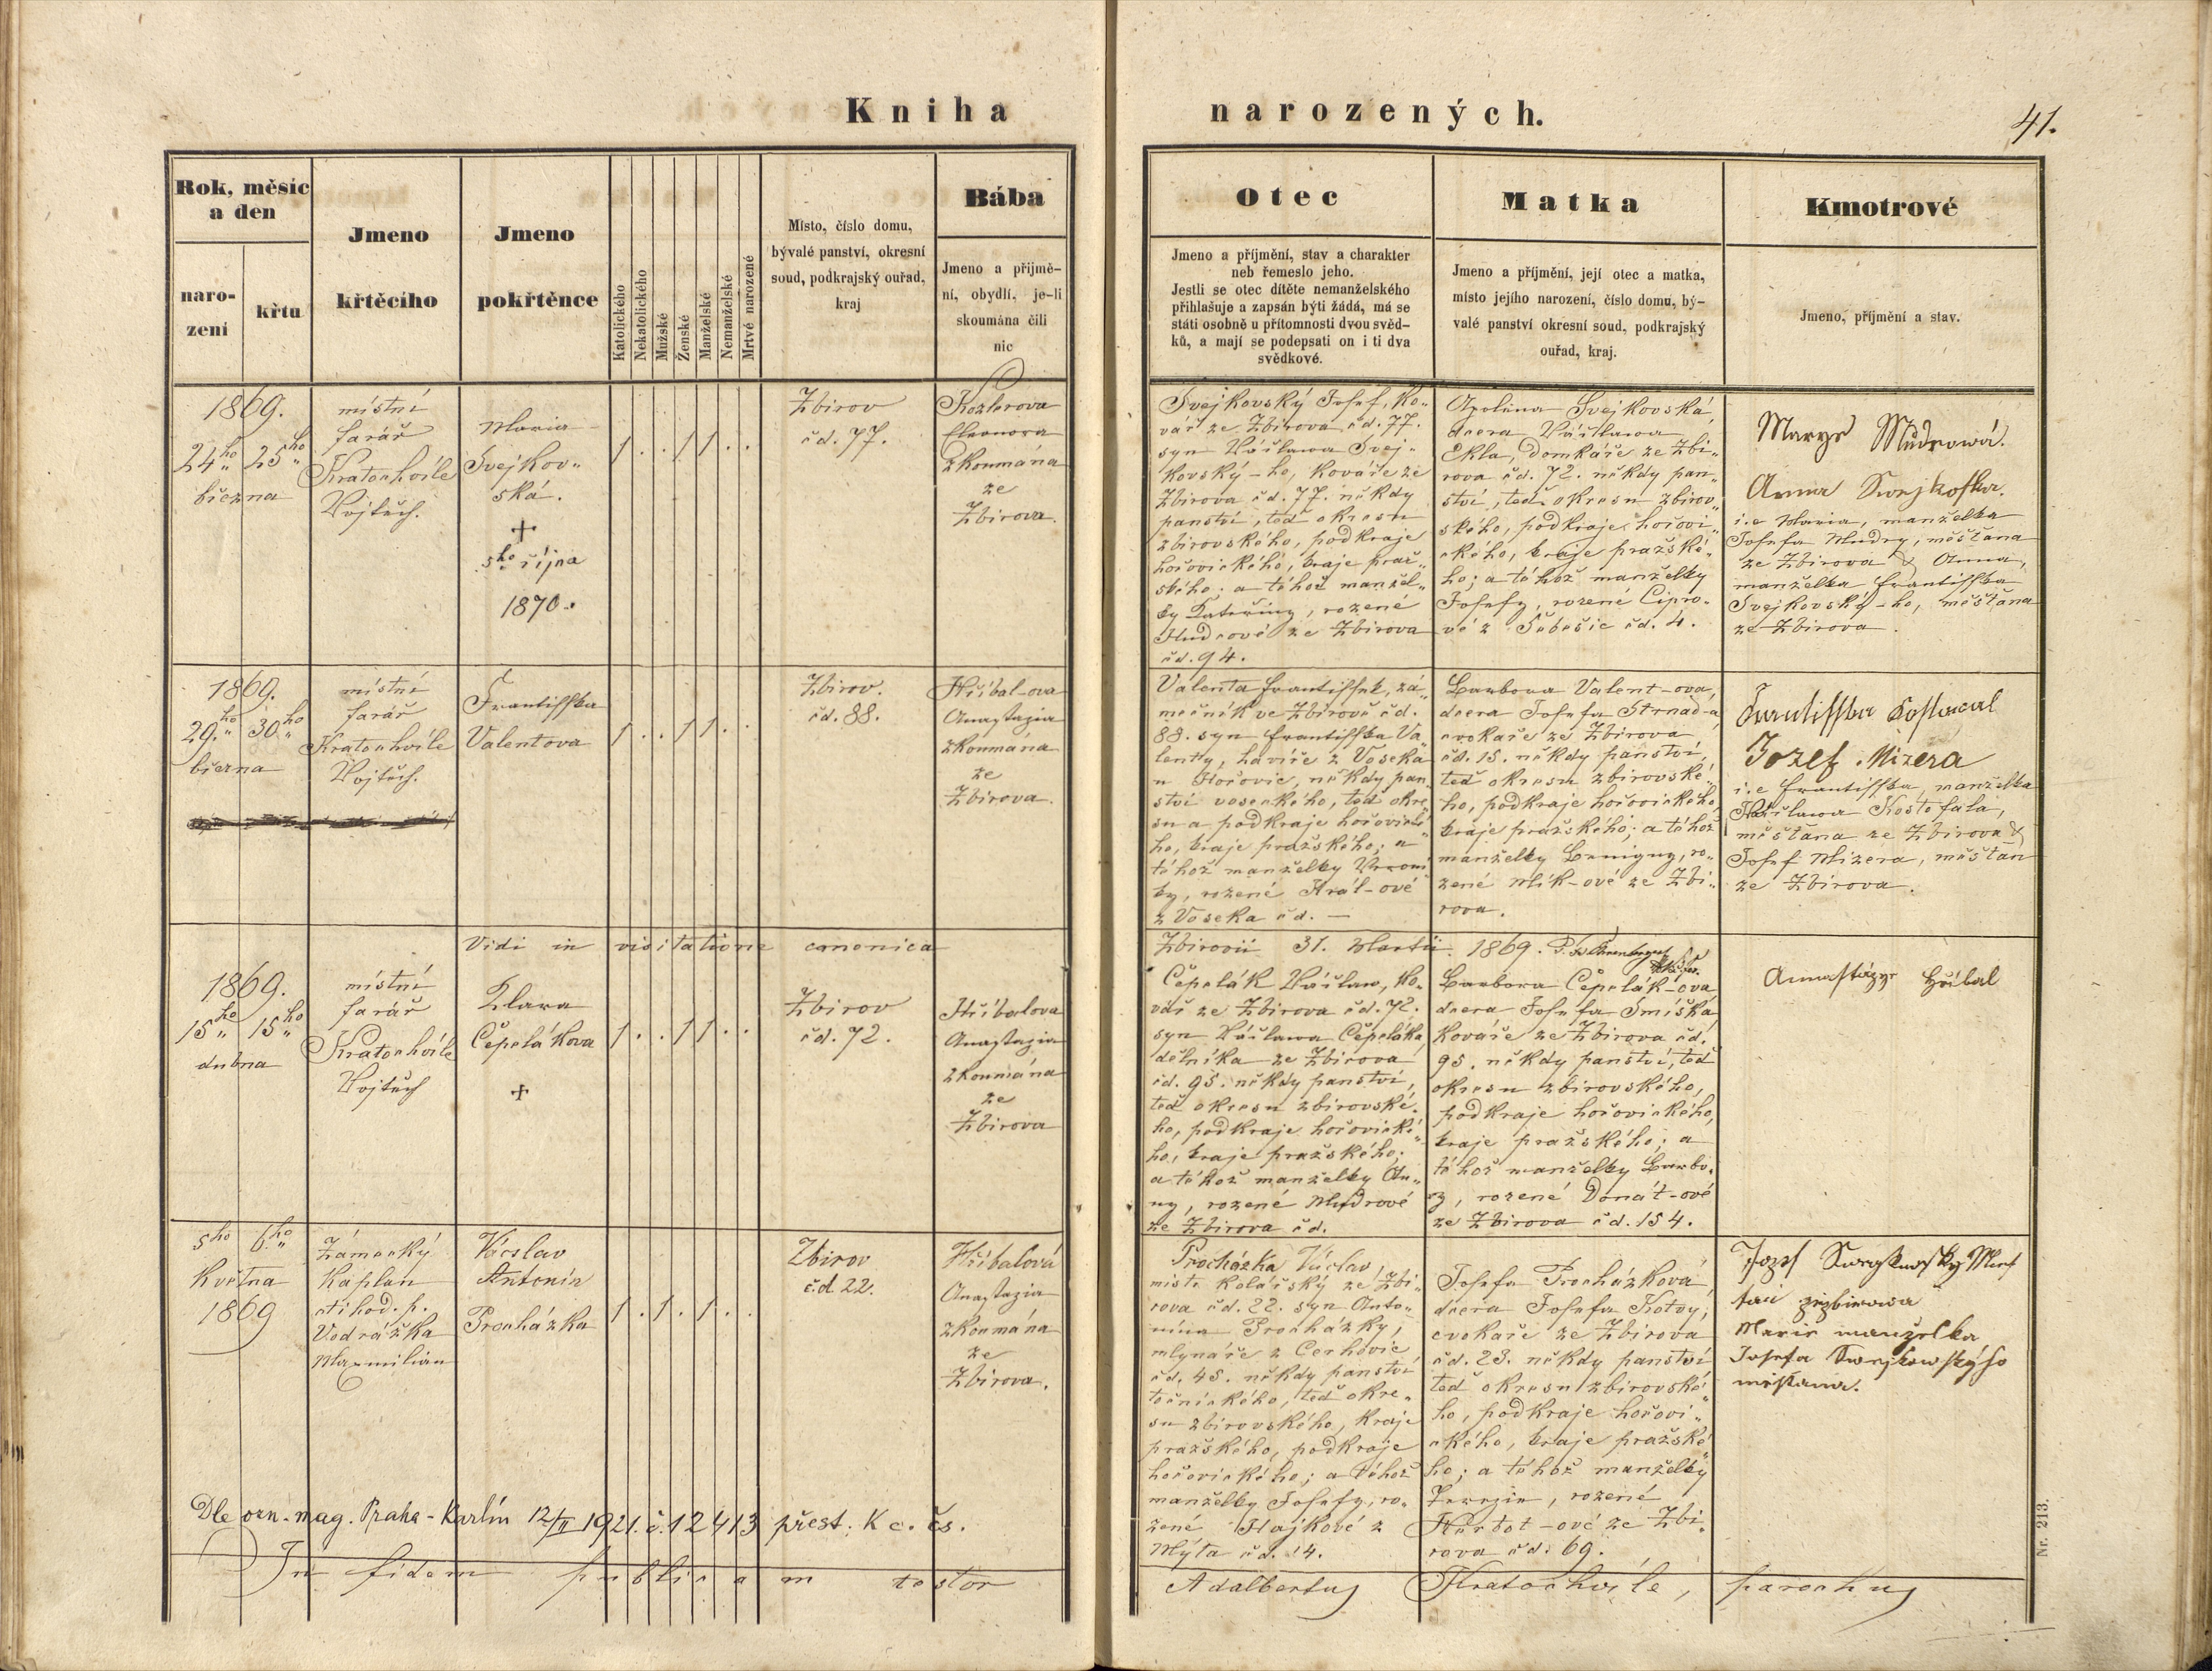 Kniha
narozených.
41.
Rok, měsíc
a den
naro-
zení
křtu
Jmeno
křtěcího
Jmeno
pokřtěnce
Katolického
Nekatolického
Mužské
Ženské
Manželské
Nemanželské
Mrtvé narozené
Místo, číslo domu,
bývalé panství, okresní
soud, podkrajský ouřad,
kraj
Bába
Jmeno a přijmě-
ní, obydlí, je-li
skoumána čili
nic
Otec
Jmeno a příjmění, stav a charakter
neb řemeslo jeho.
Jestli se otec dítěte nemanželského
přihlašuje a zapsán býti žádá, má se
státi osobně u přítomnosti dvou svěd-
ků, a mají se podepsati on i ti dva
svědkové.
Matka
Jmeno a příjmění, její otec a matka,
místo jejího narození, číslo domu, bý-
valé panství okresní soud, podkrajský
ouřad, kraj.
Kmotrové
Jmeno, příjmění a stav.
1869.
24ho 25ho
března
místní
farář
Kratochvíle
Vojtěch.
Maria
Svejkov-
ská.
+
5ho října
1870.
1 . . 1 1 . .
Zbirov
čd. 77.
Kozlerova
Eleonora
zkoumána
ze
Zbirova.
Svejkovský Josef, ko-
vář ze Zbirova čd. 77.
syn Váslawa Svej-
kovský-ho, kováře ze
Zbirova čd. 77. někdy
panství, teď okresu
zbirovského, podkraje
hořovického, kraje praž-
ského; a téhož manžel-
ky Kateřiny, rozené
Mudrové ze Zbirova
čd. 94.
Apolena Svejkovská,
dcera Váslawa
Ekla, domkáře ze Zbi-
rova čd. 72. někdy pan-
ství, teď okresu zbirov-
ského, podkraje hořovi-
ckého, kraje pražské-
ho; a téhož manželky
Josefy, rozené Cipro-
vé z Těbešic čd. 4.
Marye Mudrowá.
Anna Swejkofka.
i.e Maria, manželka
Josefa Mudry, měšťana
ze Zbirova & Anna,
manželka Frantisska
Svejkovský-ho, měšťana
ze Zbirova.
1869.
29.ho 30.ho
března
místní
farář
Kratochvíle
Vojtěch.
Frantisska
Valentova
1 . . 1 1 . .
Zbirov.
čd. 88.
Hříbal-ova
Anastazia
zkoumána
ze
Zbirova.
Valenta Frantissek, zá-
mečník ve Zbirově čd.
88. syn Frantisska Va-
lenty, havíře z Voseka
u Hořovic, někdy pan-
ství voseckého, teď okre-
su a podkraje hořovické-
ho, kraje pražského; a
téhož manželky Veroni-
ky, rozené Král-ové
z Voseka čd. —
Barbora Valent-ova,
dcera Josefa Strnad-a,
cvokaře ze Zbirova
čd. 15. někdy panství,
teď okresu zbirovské-
ho, podkraje hořovického,
kraje pražského; a téhož
manželky Benigny, ro-
zené Mlík-ové ze Zbi-
rova.
Jozef Mizera
i.e Frantisska, manželka
Váslawa Kostofala,
měšťana ze Zbirova &
Josef Mizera, měšťan
ze Zbirova.
Vidi in visitatione canonica
Zbirovii 31. Martii 1869.
1869.
15ho 15ho
dubna
místní
farář
Kratochvíle
Vojtěch
Klara
Čepelákova
+
1 . . 1 1 . .
Zbirov
čd. 72.
Hříbalova
Anastazia
zkoumána
ze
Zbirova
Čepelák Váslaw, ko-
vář ze Zbirova čd. 72.
syn Váslawa Čepeláka,
dělníka ze Zbirova
čd. 95. někdy panství,
teď okresu zbirovské-
ho, podkraje hořovické-
ho, kraje pražského;
a téhož manželky An-
ny, rozené Mudrové
ze Zbirova čd.
Barbora Čepelák-ova,
dcera Josefa Smíška,
kováře ze Zbirova čd.
95. někdy panství, teď
okresu zbirovského,
podkraje hořovického,
kraje pražského; a
téhož manželky Barbo-
ry, rozené Donát-ové
ze Zbirova čd. 154.
Annastázye Hříbal
5ho 6ho
Května
1869
Zámecký
kaplan
ctihod. p.
Vodrážka
Maxmilian
Vácslav
Antonín
Procházka
1 . 1 . 1 . .
Zbirov
č.d. 22.
Hříbalová
Anastazia
zkoumána
ze
Zbirova.
Procházka Václav,
mistr kolářský ze Zbi-
rova čd. 22. syn Anto-
nína Procházky,
mlynáře z Cerhovic
čd. 45. někdy panství
točnického, teď okre-
su zbirovského, kraje
pražského, podkraje
hořovického; a téhož
manželky Josefy, ro-
zené Hajkové z
Mýta čd. 14.
Josefa Procházková
dcera Josefa Kotvy,
cvokaře ze Zbirova
čd. 23. někdy panství
teď okresu zbirovské-
ho, podkraje hořovi-
ckého, kraje pražské-
ho; a téhož manželky
Terezie, rozené
ové ze Zbi-
rova čd. 69.
Marie manželka
Josefa Swejkowskýho
měštana.
Dle ozn. mag. Praha-Karlín 12/II 1921. č. 12413 přest. k c. čs.
In fidem publicam testor
Adalbertus Kratochvíle, parochus
Nr. 213.